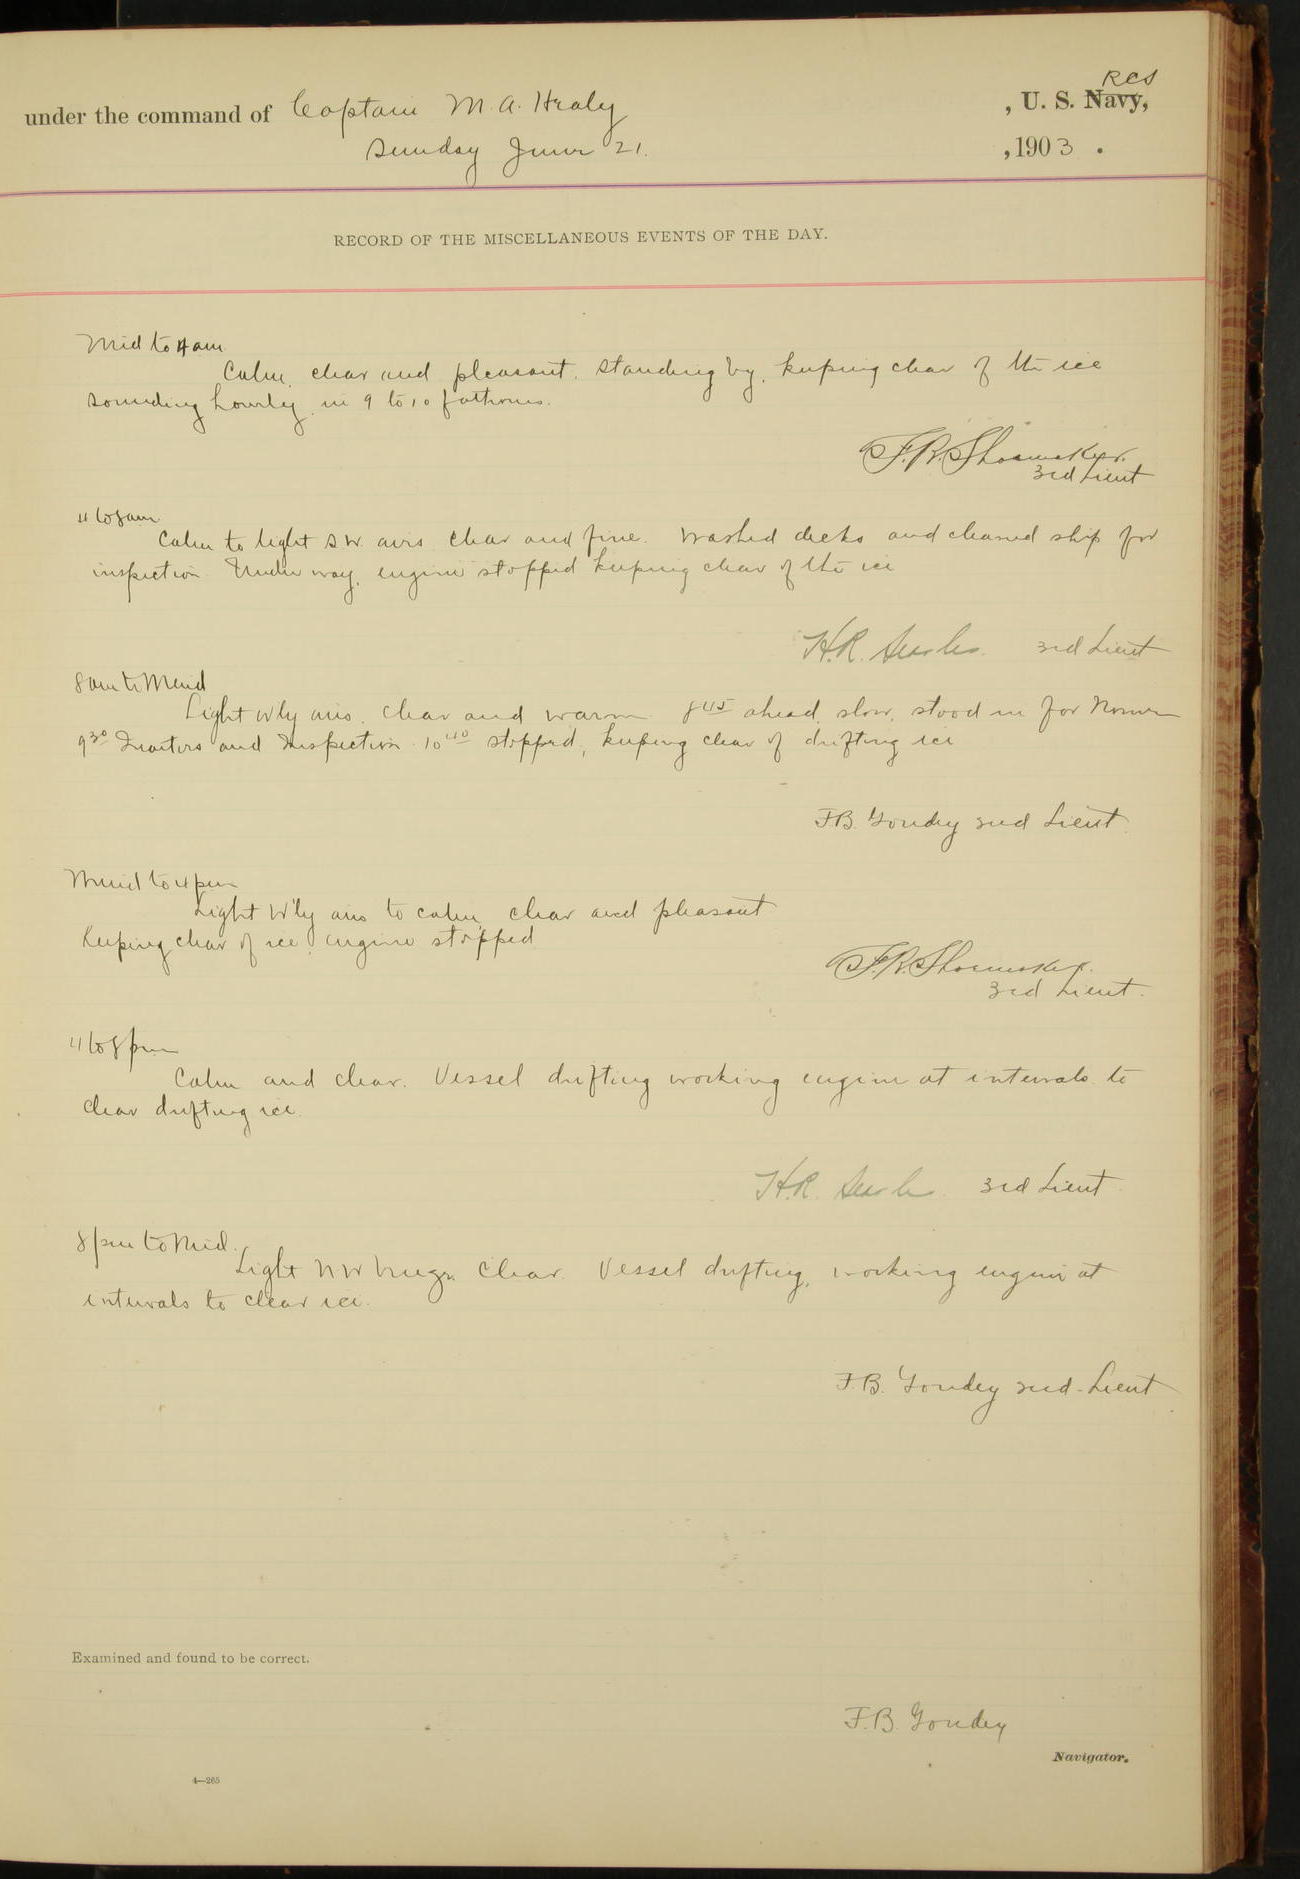 RCS
under the command of Captain M. A. Healy , U. S. Navy,
Sunday June 21. , 1903 .
RECORD OF THE MISCELLANEOUS EVENTS OF THE DAY.
Mid to 4 am
Calm, clear and pleasant. Standing by, keeping clear of the ice
sounding hourly in 9 to 10 fathoms.
F. R. Shoemaker.
3rd Lieut
4 to 8 am
Calm to light SW. airs clear and fine. Washed decks and cleaned ship for
inspection. Under way, engine stopped keeping clear of the ice
H. R. Searles. 3rd Lieut
8 am to Merid
Light W'ly airs. clear and warm 8 45 ahead, slow, stood in for
9 30 Quarters and Inspection. 10 40 stopped, keeping clear of drifting ice
F. B. Goudey 2nd Lieut.
Merid to 4 pm
Light W'ly airs to calm, clear and pleasant
Keeping clear of ice, engine stopped
F. R. Shoemaker.
3rd Lieut.
4 to 8 pm
Calm and clear. Vessel drifting working engine at intervals to
clear drifting ice.
H. R. Searles. 3rd Lieut
8 pm to Mid.
Light NW breeze. Clear. Vessel drifting, working engine at
intervals to clear ice.
F. B. Goudey 2nd Lieut
Examined and found to be correct.
F. B. Goudey
Navigator.
4—265